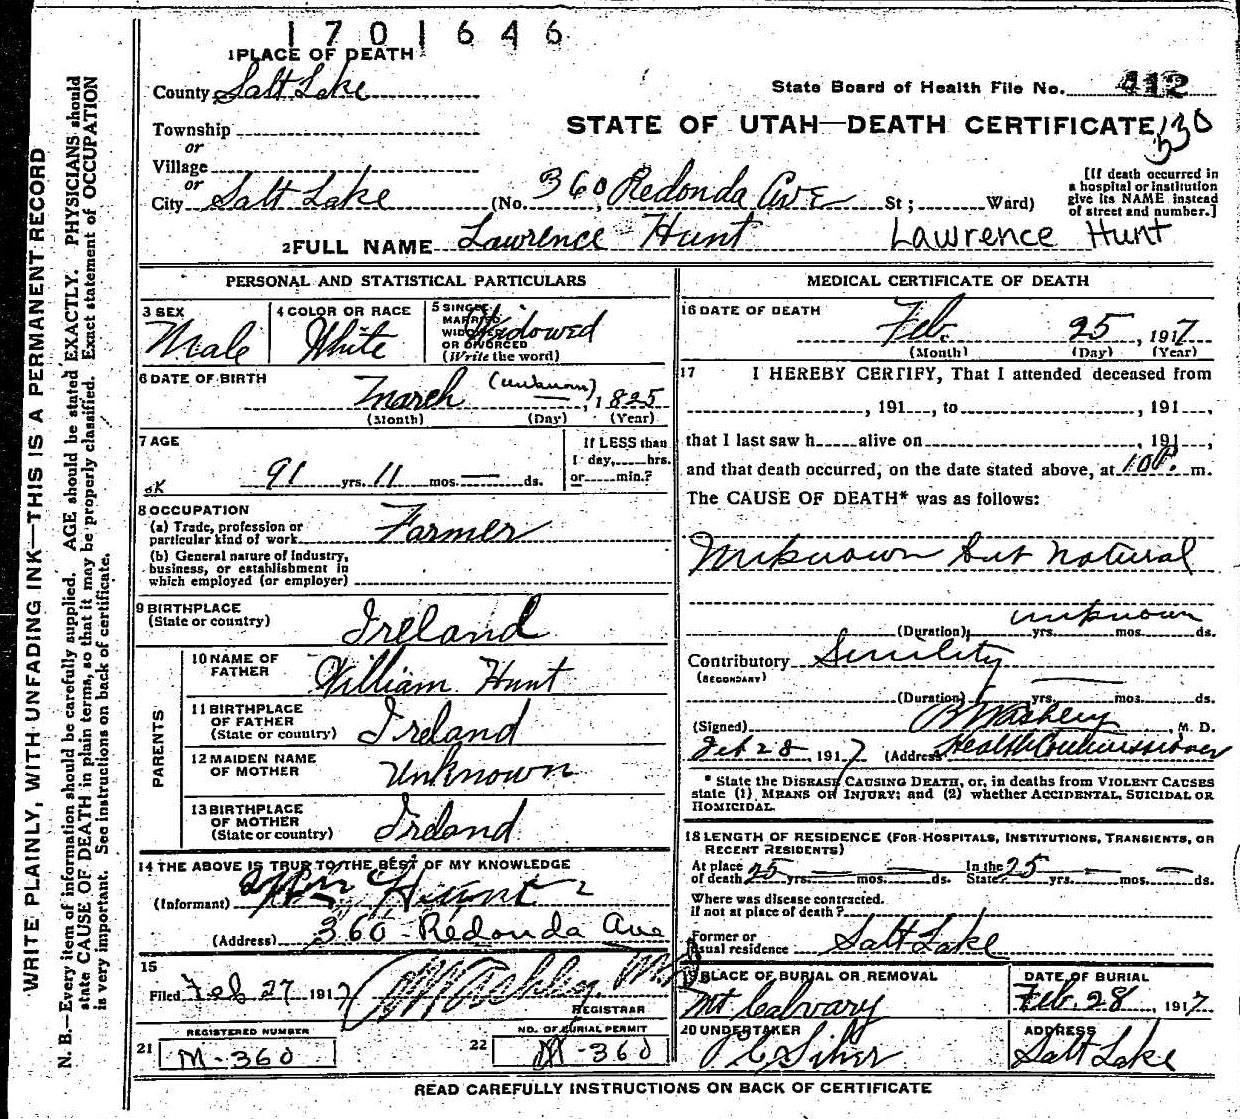 1701646
1 PLACE OF DEATH
County Salt Lake
State Board of Health File No. 412
Township
or
STATE OF UTAH—DEATH CERTIFICATE 530
Village
or
City Salt Lake (No. 360, Redonda Ave St; Ward)
[If death occurred in
a hospital or institution
give its NAME instead
of street and number.]
2 FULL NAME Lawrence Hunt Lawrence Hunt
PERSONAL AND STATISTICAL PARTICULARS
3 SEX
Male
4 COLOR OR RACE
White
5 SINGLE
MARRIED
WIDOWED
OR DIVORCED
(Write the word)
Widowed
6 DATE OF BIRTH
March (unknown) — , 1825
(Month) (Day) (Year)
7 AGE
If LESS than
1 day, hrs.
or min.?
91 yrs. 11 mos. — ds.
OK
8 OCCUPATION
(a) Trade, profession or
particular kind of work Farmer
(b) General nature of industry,
business, or establishment in
which employed (or employer)
9 BIRTHPLACE
(State or country) Ireland
PARENTS
10 NAME OF
FATHER William Hunt
11 BIRTHPLACE
OF FATHER
(State or country) Ireland
12 MAIDEN NAME
OF MOTHER Unknown
13 BIRTHPLACE
OF MOTHER
(State or country) Ireland
14 THE ABOVE IS TRUE TO THE BEST OF MY KNOWLEDGE
(Informant) Hunt
(Address) 360 - Redonda Ave
15
Filed Feb 27 1917
REGISTRAR
REGISTERED NUMBER
21 M-360
NO. OF BURIAL PERMIT
22 M-360
MEDICAL CERTIFICATE OF DEATH
16 DATE OF DEATH
Feb. 25, 1917
(Month) (Day) (Year)
17 I HEREBY CERTIFY, That I attended deceased from
, 191 , to , 191 ,
that I last saw h alive on , 191 ,
and that death occurred, on the date stated above, at 10 P. m.
The CAUSE OF DEATH* was as follows:
Unknown but natural
unknown
(Duration) yrs. mos. ds.
Contributory Senility
(SECONDARY)
(Duration) yrs. — mos. ds.
(Signed) M. D.
Feb 28 1917 (Address) Health Commissioner
* State the DISEASE CAUSING DEATH, or, in deaths from VIOLENT CAUSES
state (1) MEANS OF INJURY; and (2) whether ACCIDENTAL, SUICIDAL OR
HOMICIDAL.
18 LENGTH OF RESIDENCE (FOR HOSPITALS, INSTITUTIONS, TRANSIENTS, OR
RECENT RESIDENTS)
At place
of death 25 yrs. — mos. — ds.
In the
State 25 yrs. — mos. — ds.
Where was disease contracted.
if not at place of death?
Former or
usual residence Salt Lake
19 PLACE OF BURIAL OR REMOVAL
Mt Calvary
DATE OF BURIAL
Feb. 28, 1917
20 UNDERTAKER
ADDRESS
Salt Lake
READ CAREFULLY INSTRUCTIONS ON BACK OF CERTIFICATE
WRITE PLAINLY, WITH UNFADING INK—THIS IS A PERMANENT RECORD
N. B.—Every item of information should be carefully supplied. AGE should be stated EXACTLY. PHYSICIANS should
state CAUSE OF DEATH in plain terms, so that it may be properly classified. Exact statement of OCCUPATION
is very important. See instructions on back of certificate.